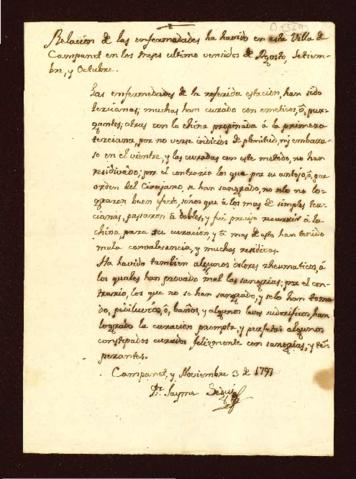 Relacion de las enfermedades ha havido en esta Villa de
Campanet en los tres ultimos vencidos de Agosto, Setiem-
bre, y Octubre.
Las enfermedades de la referida estacion, han sido
tercianas; muchas han curado con emeticos, ó, pur-
gantes; otras con la china propinada á la primera
terciana, por no verse indicios de plenitud, ni embara-
so en el vientre, y las curadas con este metodo, no han
residivado; por el contrario los que por su antojo, ó por
orden del Cirujano, se han sangrado, no solo no lo-
graron buen efecto, sino que á los mas de simples ter-
cianas, pasaron á dobles, y fue preciso recurrir á la
china, para su curacion, y los mas de estos han tenido
mala convalesencia, y muchos residivas.
Ha havido tambien algunos dolores rheumaticos, á
los quales han provado mal las sangrias; por el con-
trario, los que no se han sangrado, y solo han toma-
do, pediluvios, ó, baños, y algunos leves sudorificos, han
logrado la curacion prompta, y perfecta; algunos
constipados curados felizmente con sangrias, y tem-
perantes.
Campanet, y Noviembre 3 de 1797
Dr. Jayme Seguí